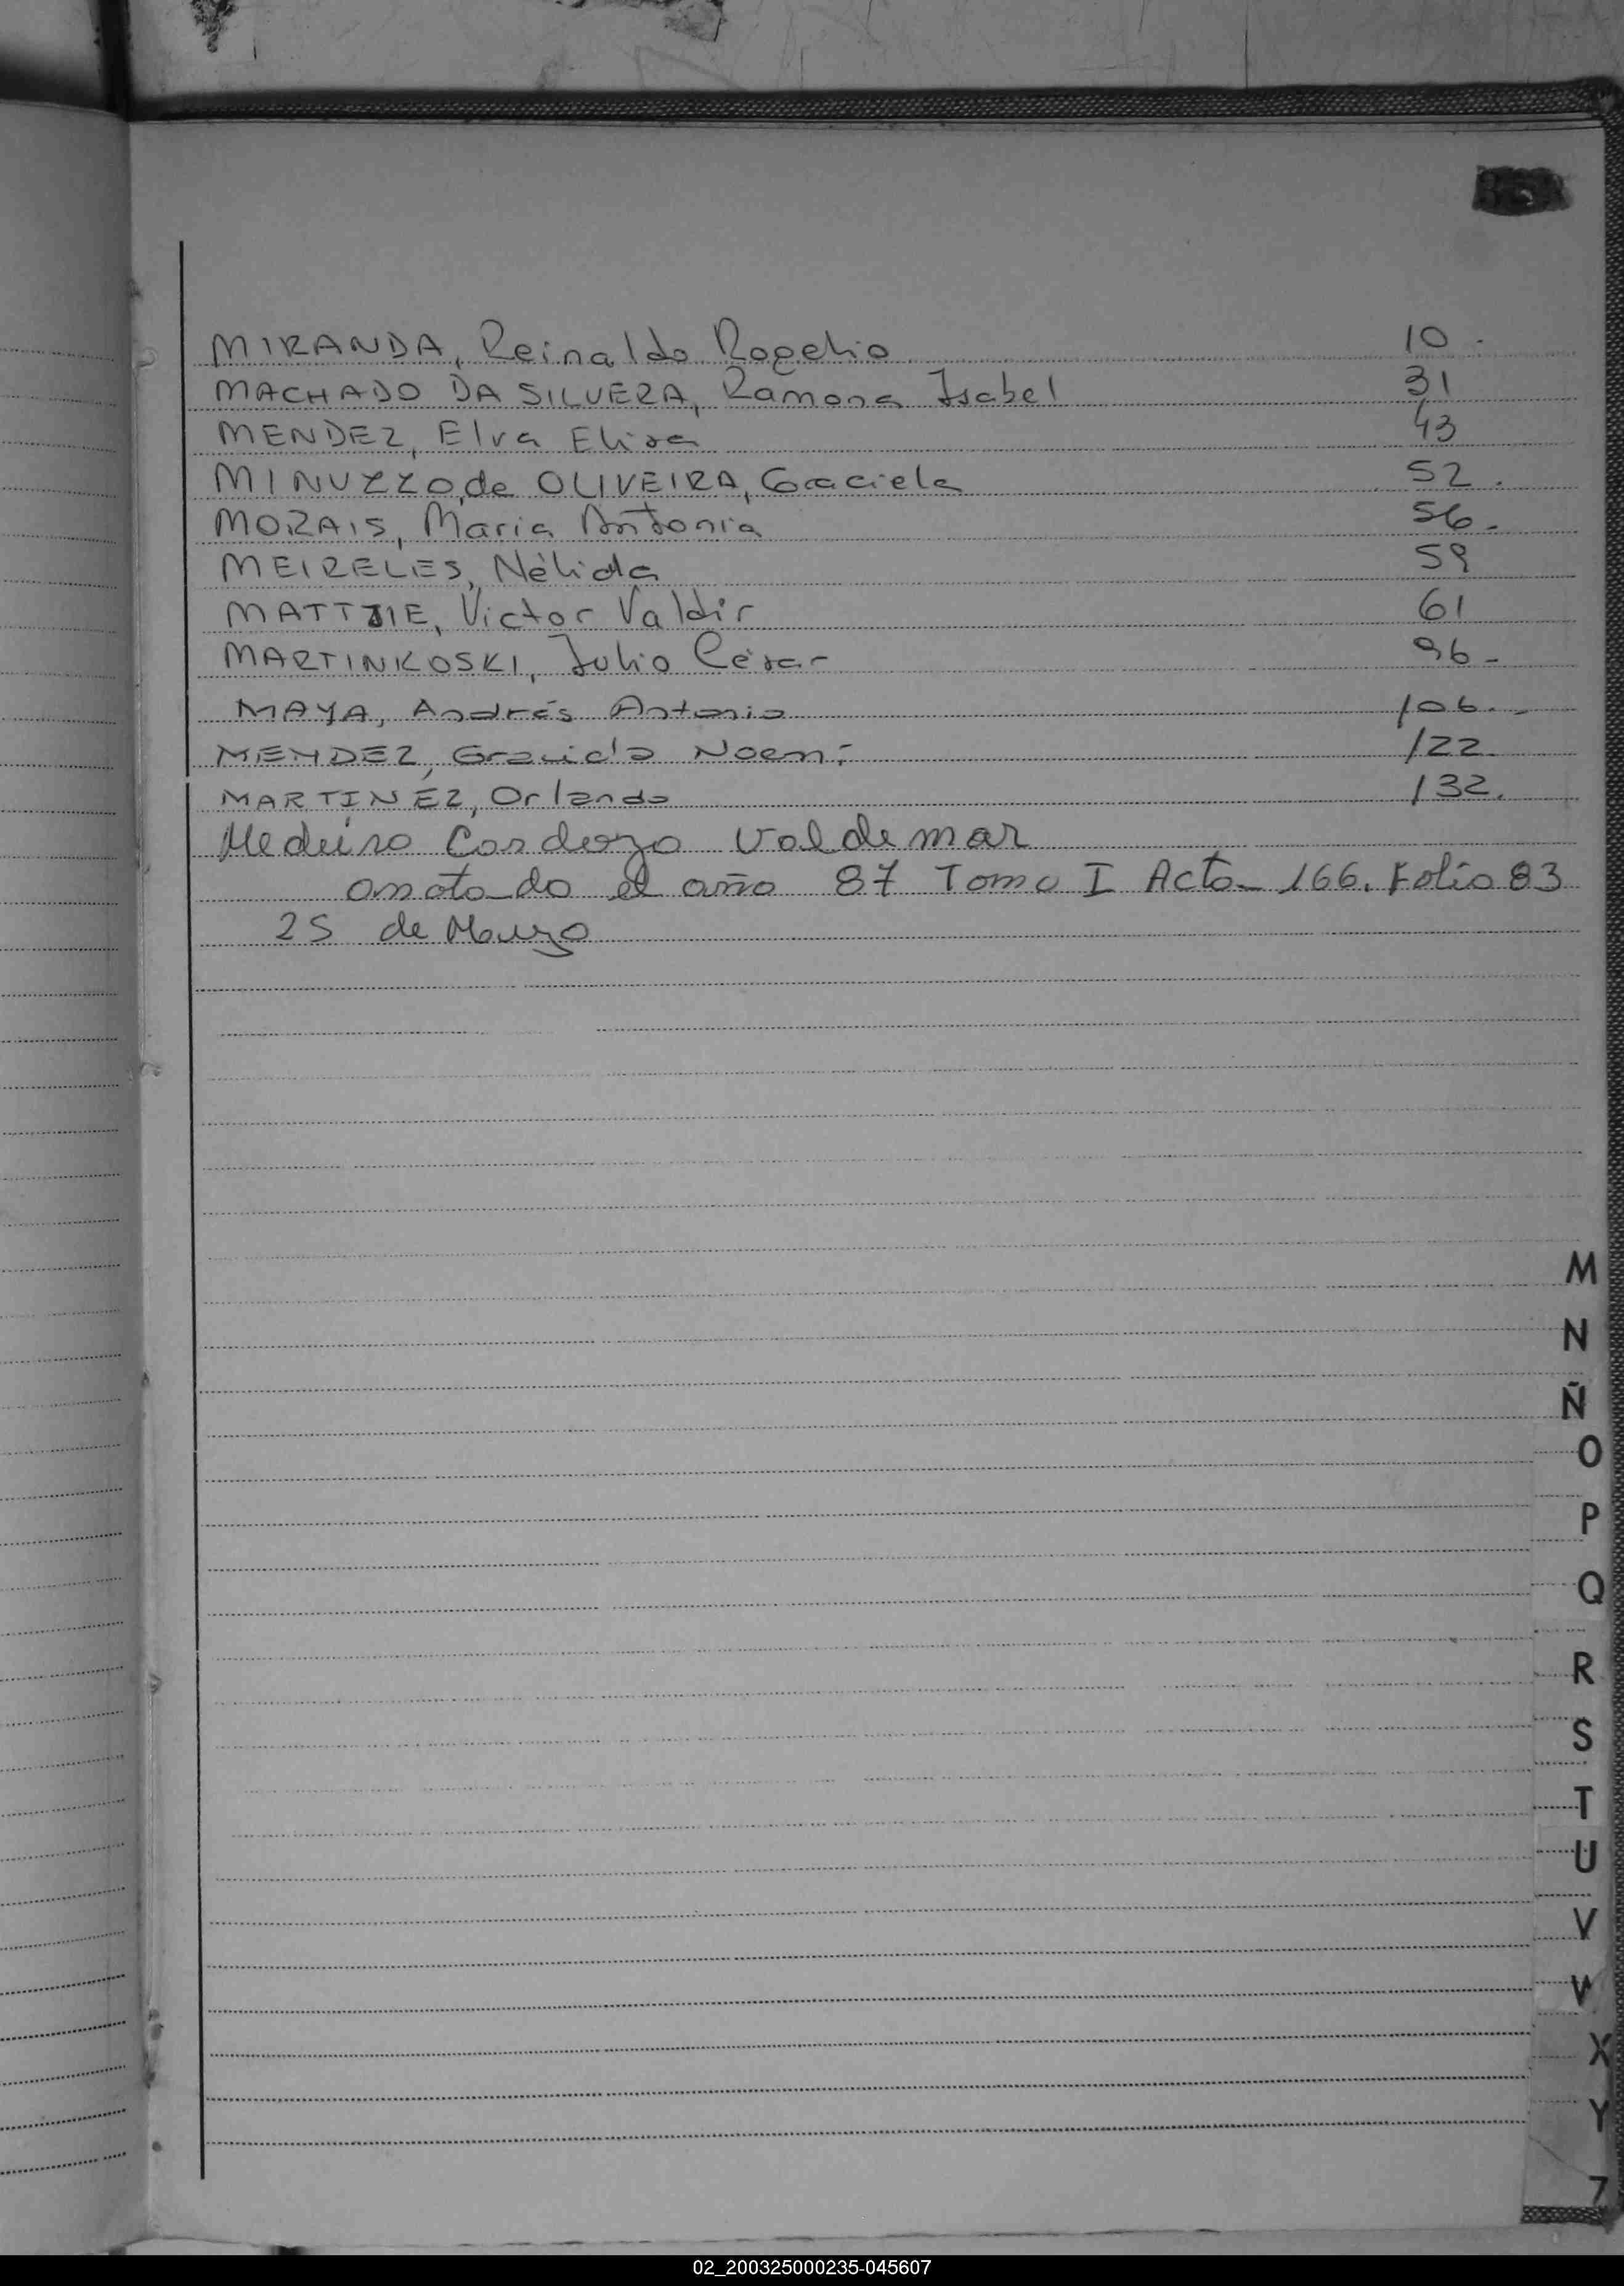 MIRANDA, Reinaldo Rogelio 10.
MACHADO DA SILVERA, Ramona Isabel 31
MENDEZ, Elva Elisa 43
MINUZZO, de OLIVEIRA, Graciela 52.
MORAIS, Maria Antonia 56.-
MEIRELES, Nélida 59
MATTJIE, Victor Valdir 61
MARTINKOSKI, Julio César 96-
MAYA, Andrés Antonio 106.-
MENDEZ, Graciela Noemí 122.
MARTINEZ, Orlando 132.
Medeiro Cardozo Valdemar
anotado el año 87 Tomo I Acta 166. Folio 83
25 de Marzo
M
N
Ñ
O
P
Q
R
S
T
U
V
W
X
Y
Z
02_200325000235-045607